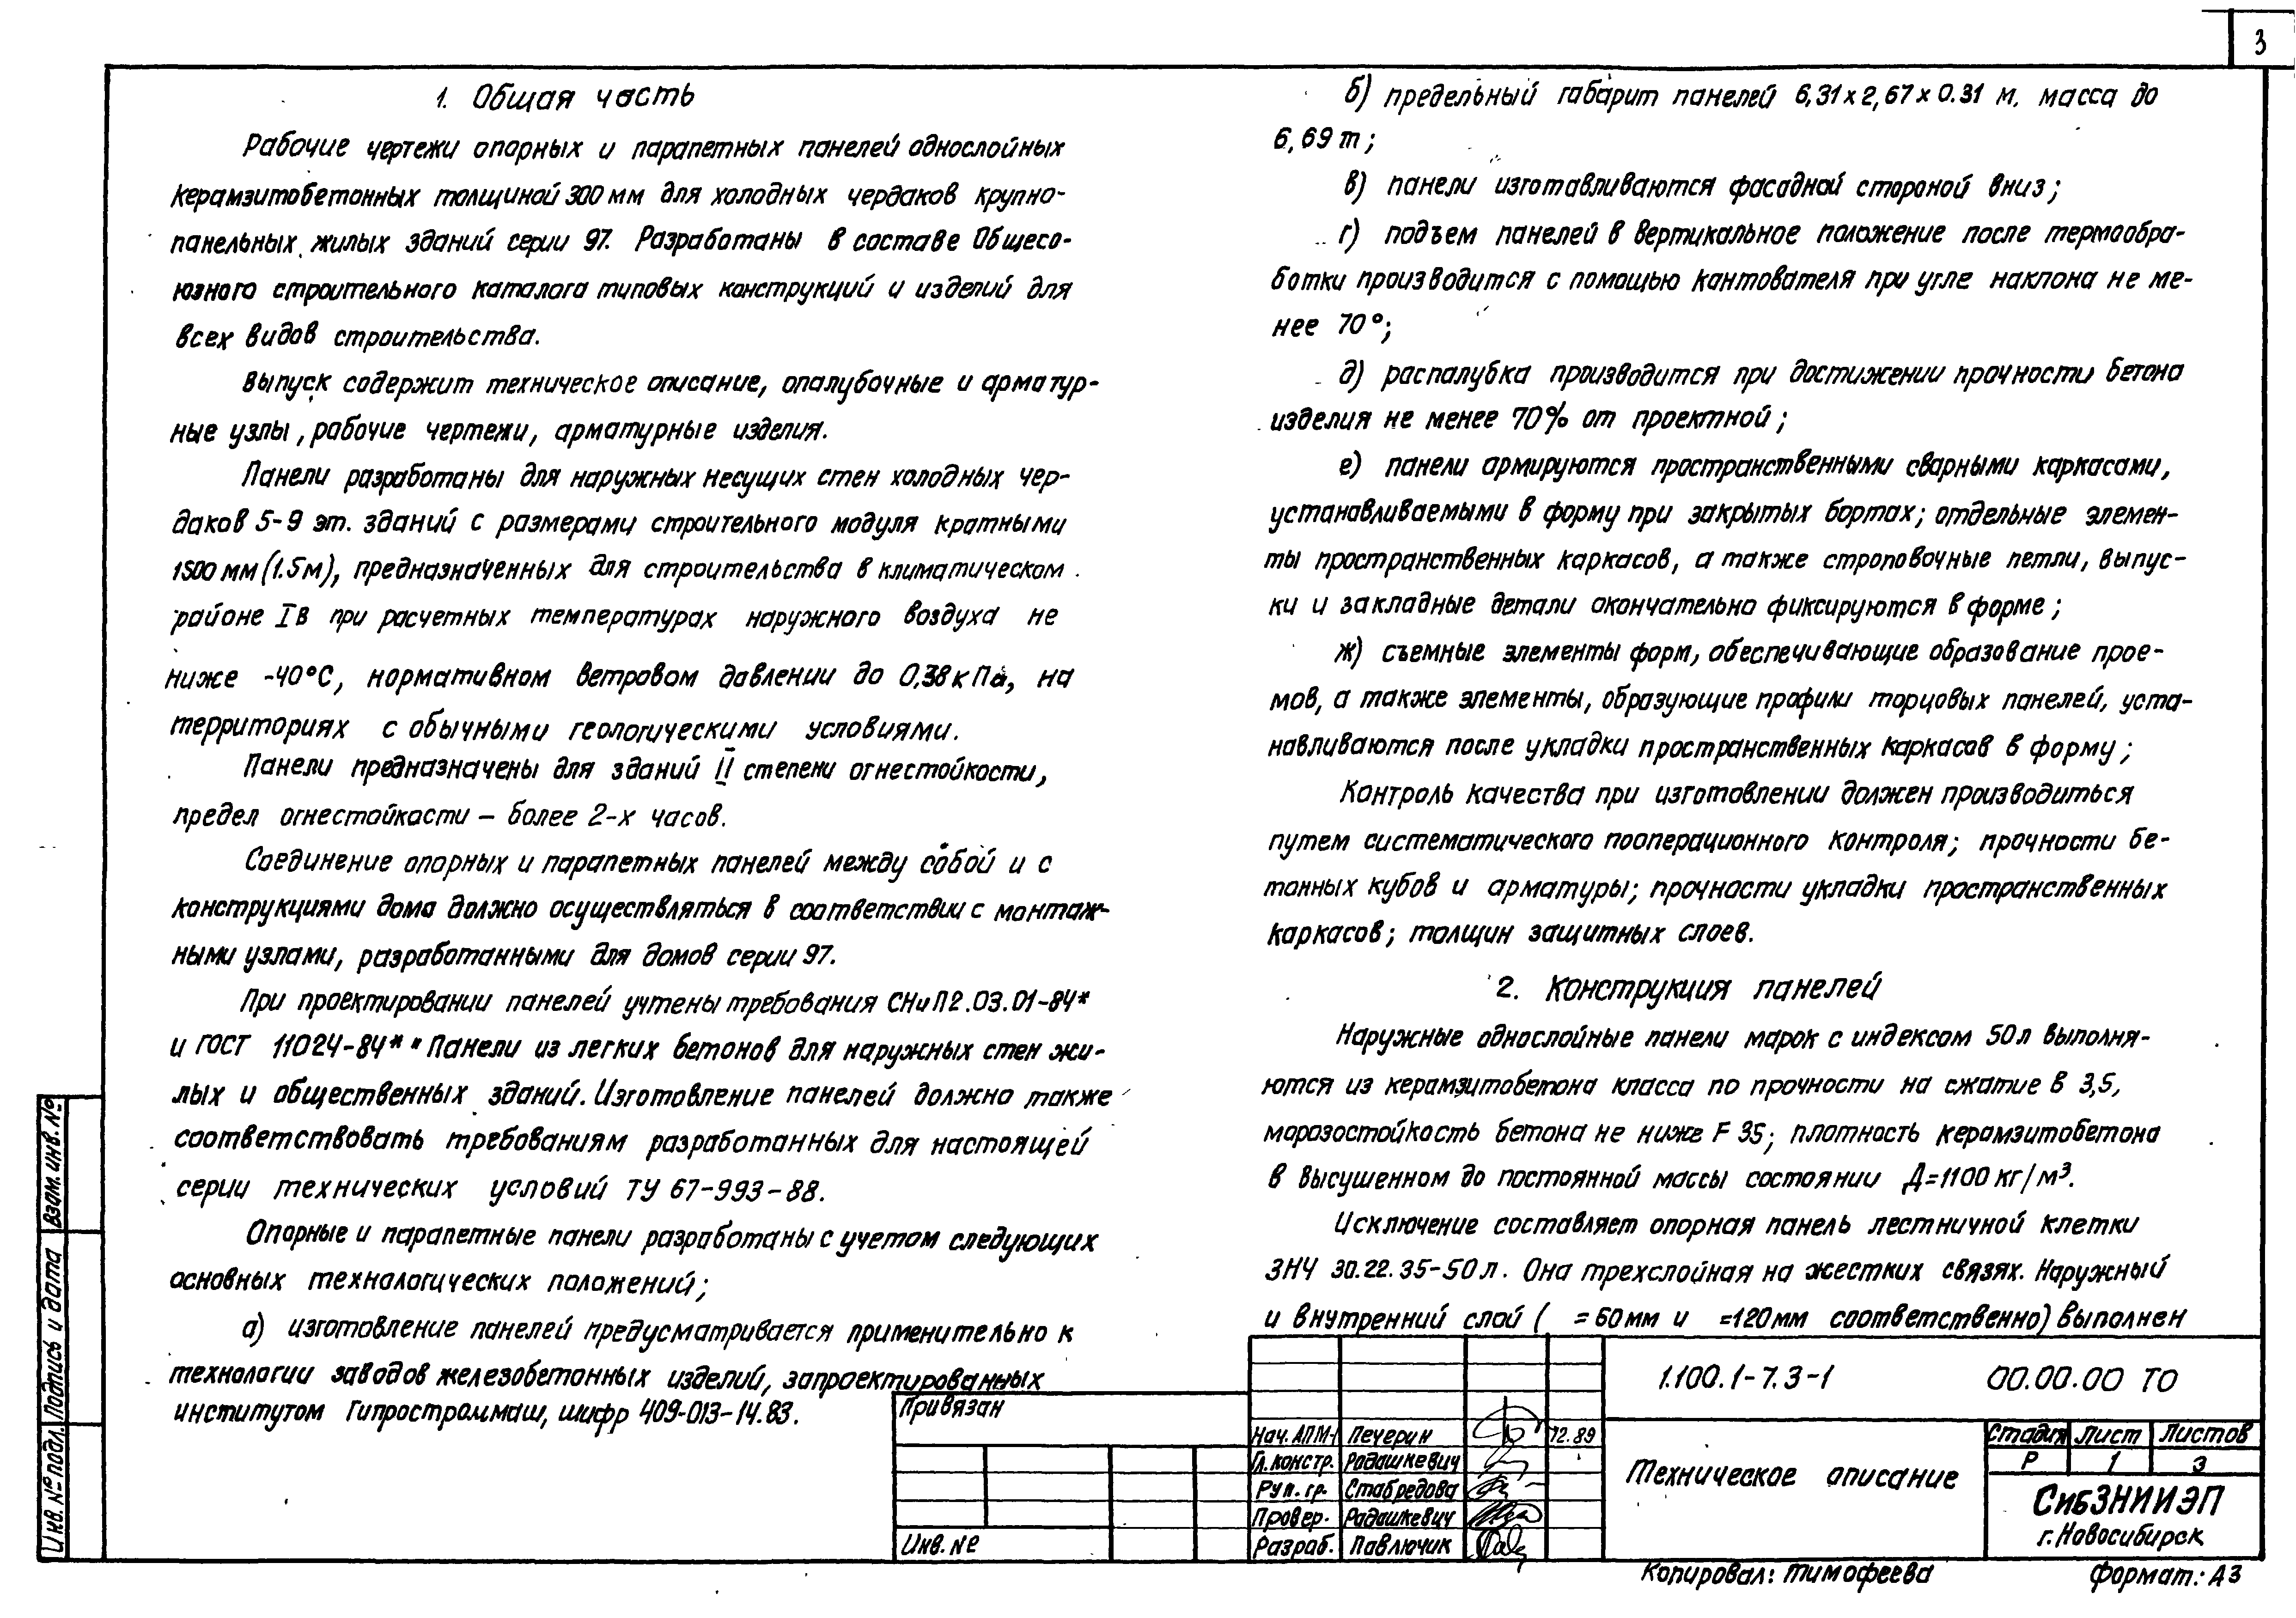 3
1. Общая часть
Рабочие чертежи опорных и парапетных панелей однослойных
керамзитобетонных толщиной 300 мм для холодных чердаков крупно-
панельных жилых зданий серии 97. Разработаны в составе Общесо-
юзного строительного каталога типовых конструкций и изделий для
всех видов строительства.
Выпуск содержит техническое описание, опалубочные и арматур-
ные узлы, рабочие чертежи, арматурные изделия.
Панели разработаны для наружных несущих стен холодных чер-
даков 5-9 эт. зданий с размерами строительного модуля кратными
1500 мм (1.5м), предназначенных для строительства в климатическом
районе IВ при расчетных температурах наружного воздуха не
ниже -40°С, нормативном ветровом давлении до 0,38 кПа, на
территориях с обычными геологическими условиями.
Панели предназначены для зданий II степени огнестойкости,
предел огнестойкости – более 2-х часов.
Соединение опорных и парапетных панелей между собой и с
конструкциями дома должно осуществляться в соответствии с монтаж-
ными узлами, разработанными для домов серии 97.
При проектировании панелей учтены требования СНиП 2.03.01-84*
и ГОСТ 11024-84* "Панели из легких бетонов для наружных стен жи-
лых и общественных зданий. Изготовление панелей должно также
соответствовать требованиям разработанных для настоящей
серии технических условий ТУ 67-993-88.
Опорные и парапетные панели разработаны с учетом следующих
основных технологических положений;
а) изготовление панелей предусматривается применительно к
технологии заводов железобетонных изделий, запроектированных
институтом Гипростроммаш, шифр 409-013-14.83.
б) предельный габарит панелей 6,31×2,67×0.31 м. масса до
6,69 т;
в) панели изготавливаются фасадной стороной вниз;
г) подъем панелей в вертикальное положение после термообра-
ботки производится с помощью кантователя при угле наклона не ме-
нее 70°;
д) распалубка производится при достижении прочности бетона
изделия не менее 70% от проектной;
е) панели армируются пространственными сварными каркасами,
устанавливаемыми в форму при закрытых бортах; отдельные элемен-
ты пространственных каркасов, а также строповочные петли, выпус-
ки и закладные детали окончательно фиксируются в форме;
ж) съемные элементы форм, обеспечивающие образование прое-
мов, а также элементы, образующие профили торцовых панелей, уста-
навливаются после укладки пространственных каркасов в форму;
Контроль качества при изготовлении должен производиться
путем систематического пооперационного контроля; прочности бе-
тонных кубов и арматуры; прочности укладки пространственных
каркасов; толщин защитных слоев.
2. Конструкция панелей
Наружные однослойные панели марок с индексом 50л выполня-
ются из керамзитобетона класса по прочности на сжатие В 3,5,
морозостойкость бетона не ниже F 35; плотность керамзитобетона
в высушенном до постоянной массы состоянии Д=1100 кг/м³.
Исключение составляет опорная панель лестничной клетки
3НЧ 30.22.35-50л. Она трехслойная на жестких связях. Наружный
и внутренний слой ( =60мм и =120мм соответственно) выполнен
Взам. инв. №
Подпись и дата
Инв. № подл.
Привязан
Инв. №
Нач. АПМ-1 Печерин 12.89
Гл. констр. Радашкевич
Рук. гр. Стабредова
Провер. Радашкевич
Разраб. Павлючик
1.100.1-7.3-1 00.00.00 ТО
Техническое описание
Стадия Лист Листов
Р 1 3
СибЗНИИЭП
г. Новосибирск
Копировал: Тимофеева Формат: А3